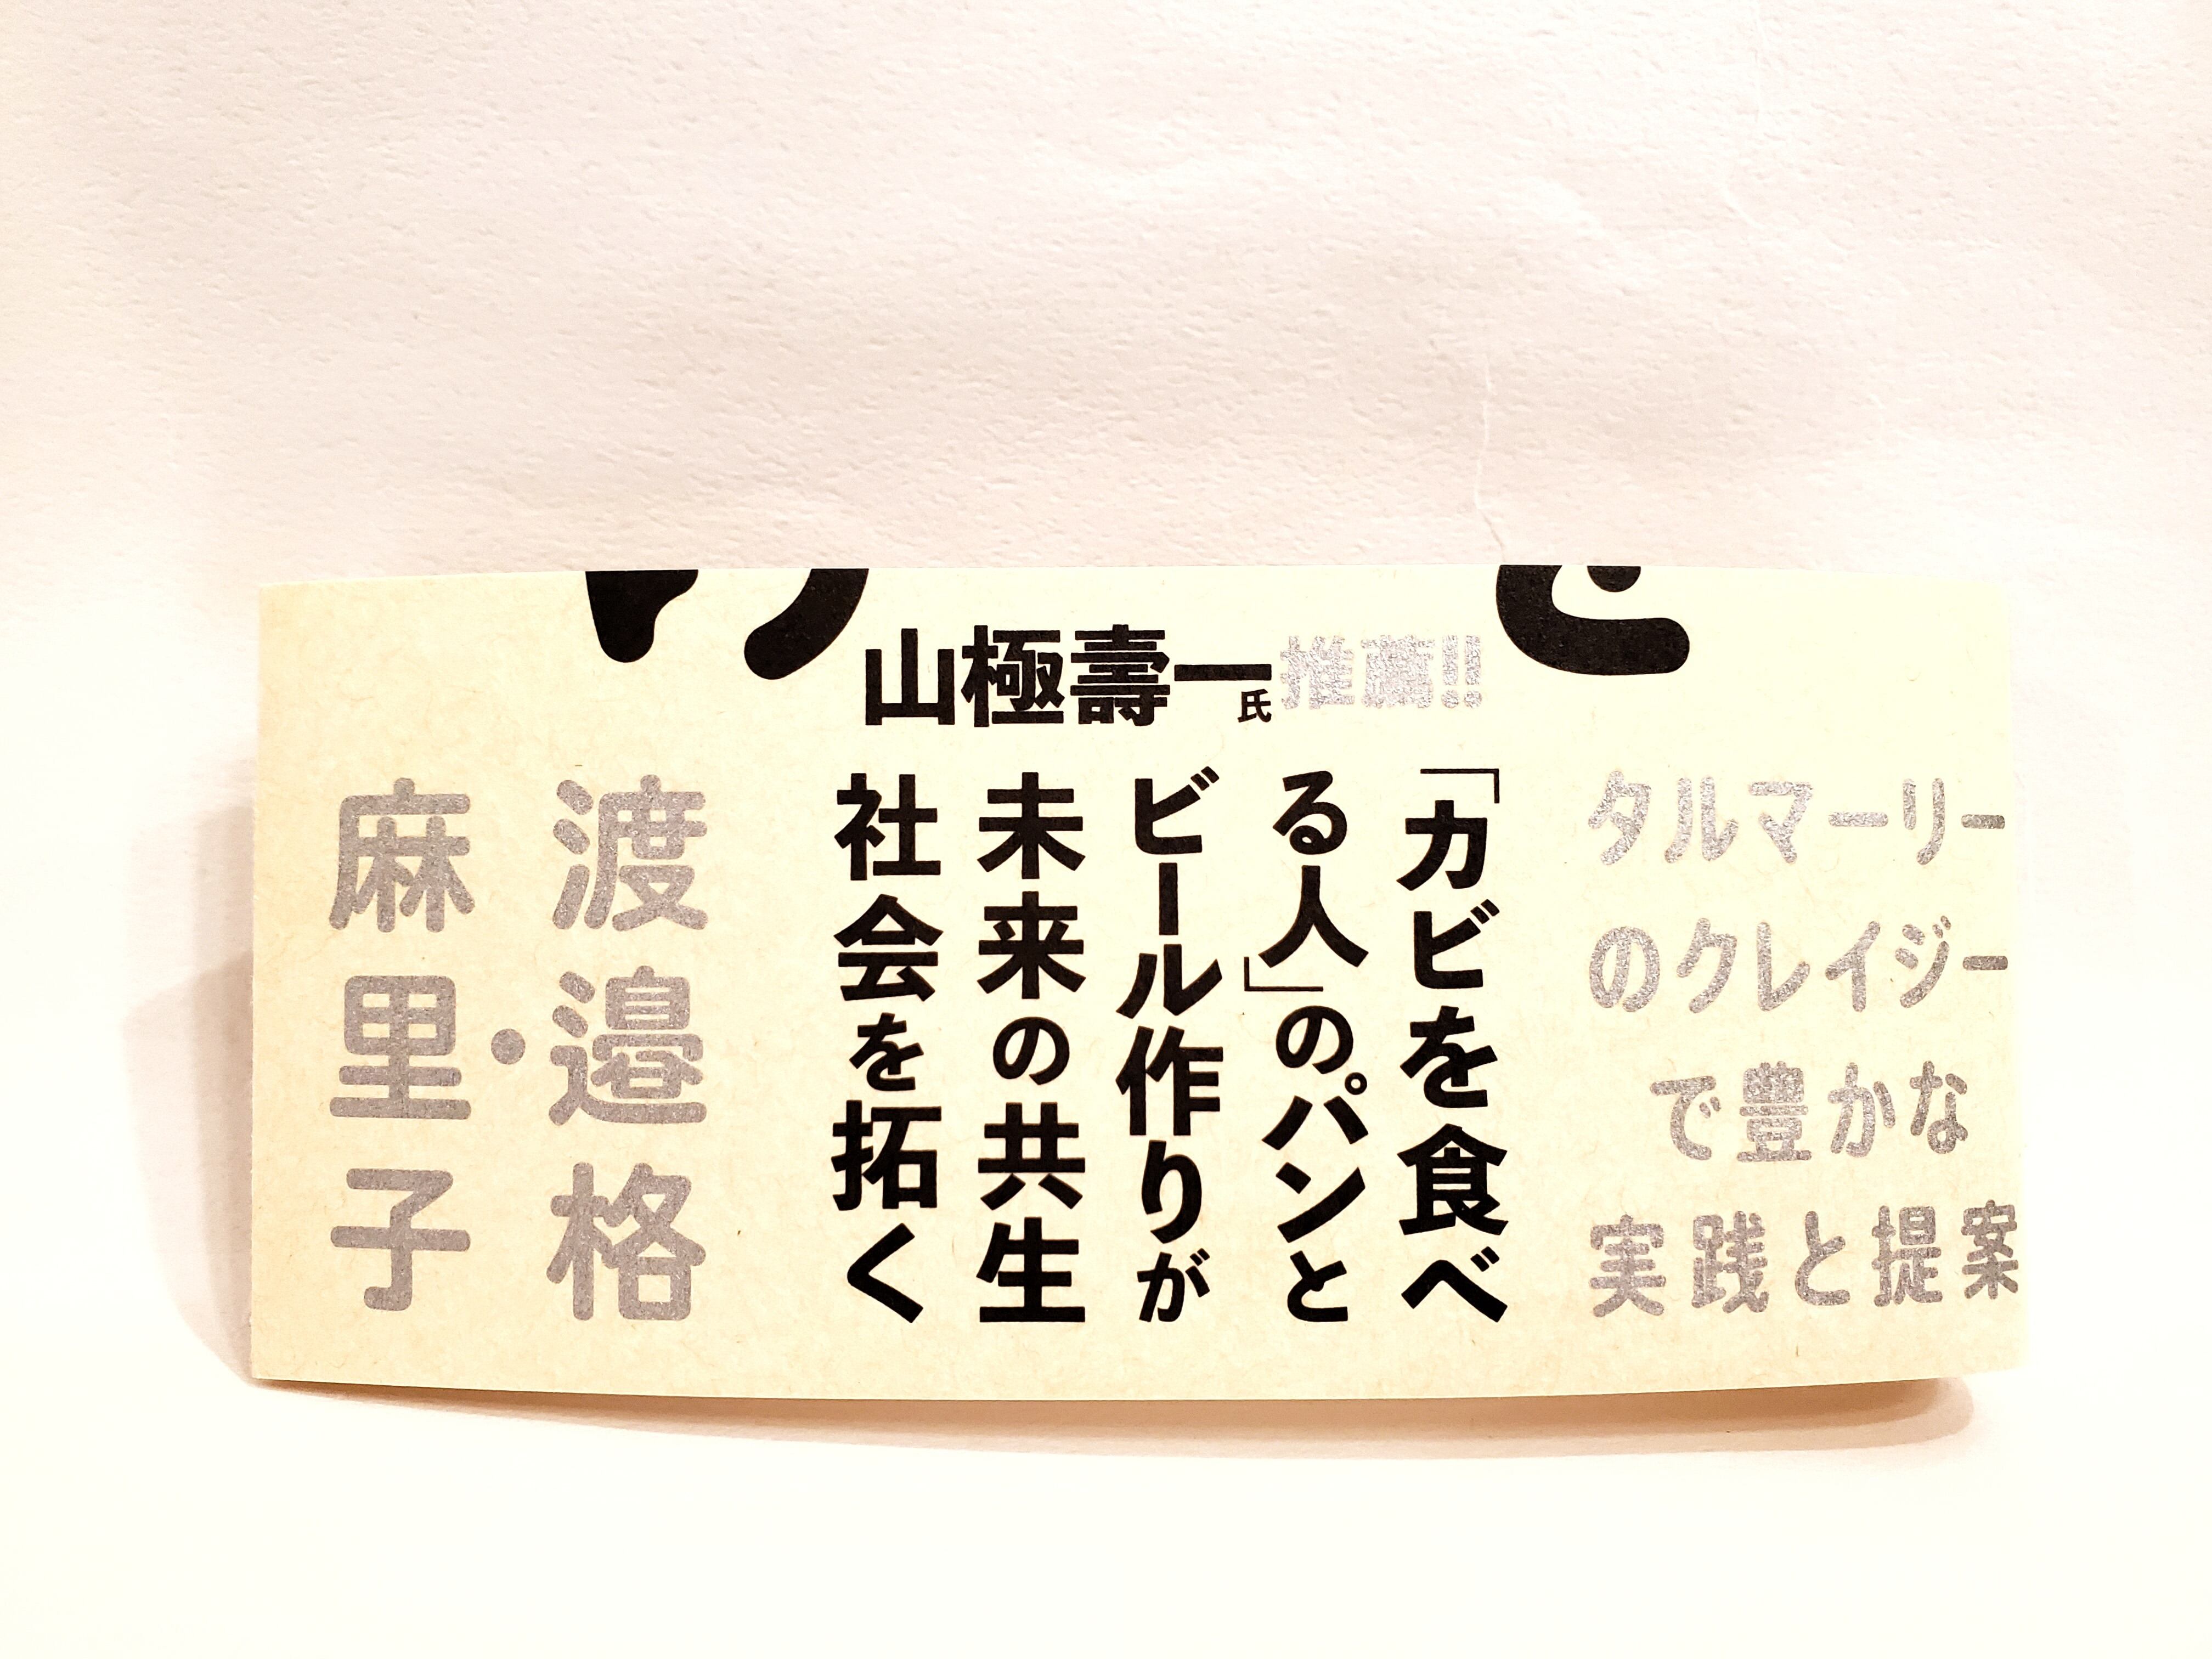 山極壽一氏推薦!!
タルマーリー
のクレイジー
で豊かな
実践と提案
「カビを食べ
る人」のパンと
ビール作りが
未来の共生
社会を拓く
渡邉格・
麻里子